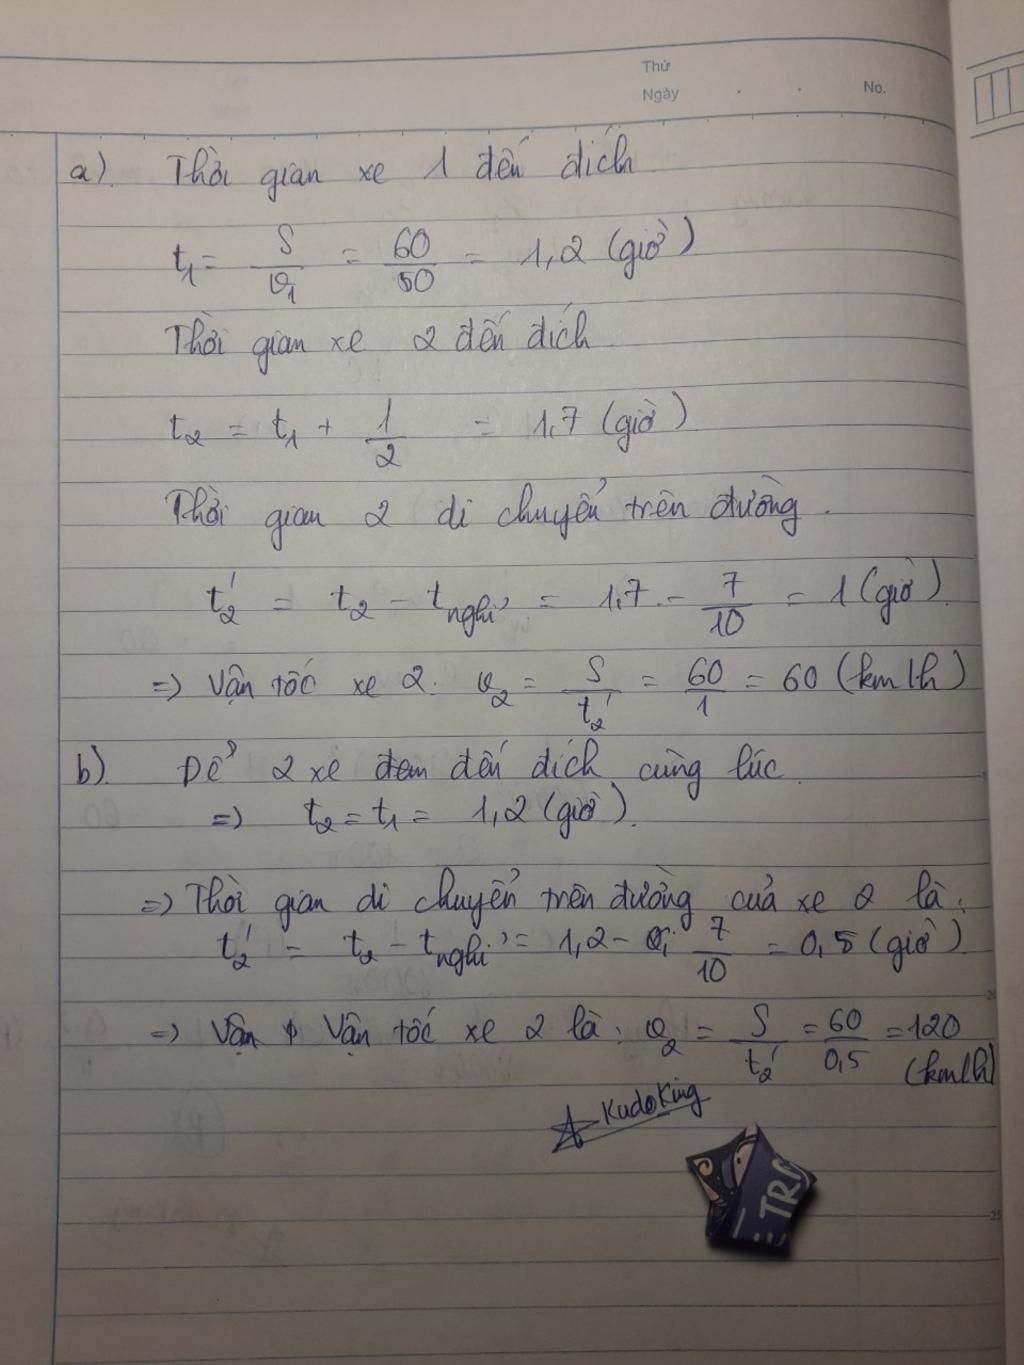 Thứ
Ngày No.
a). Thời gian xe 1 đến đích
t₁ = S/v₁ = 60/50 = 1,2 (giờ)
Thời gian xe 2 đến đích
t₂ = t₁ + 1/2 = 1,7 (giờ)
Thời gian 2 di chuyển trên đường.
t₂' = t₂ - t nghỉ = 1,7 - 7/10 = 1 (giờ)
=> Vận tốc xe 2: v₂ = S/t₂' = 60/1 = 60 (km/h)
b) Để 2 xe đến đích cùng lúc
=> t₂ = t₁ = 1,2 (giờ).
=> Thời gian di chuyển trên đường của xe 2 là:
t₂' = t₂ - t nghỉ = 1,2 - 7/10 = 0,5 (giờ)
=> Vận tốc xe 2 là: v₂ = S/t₂' = 60/0,5 = 120
(km/h)
KudoKing
25